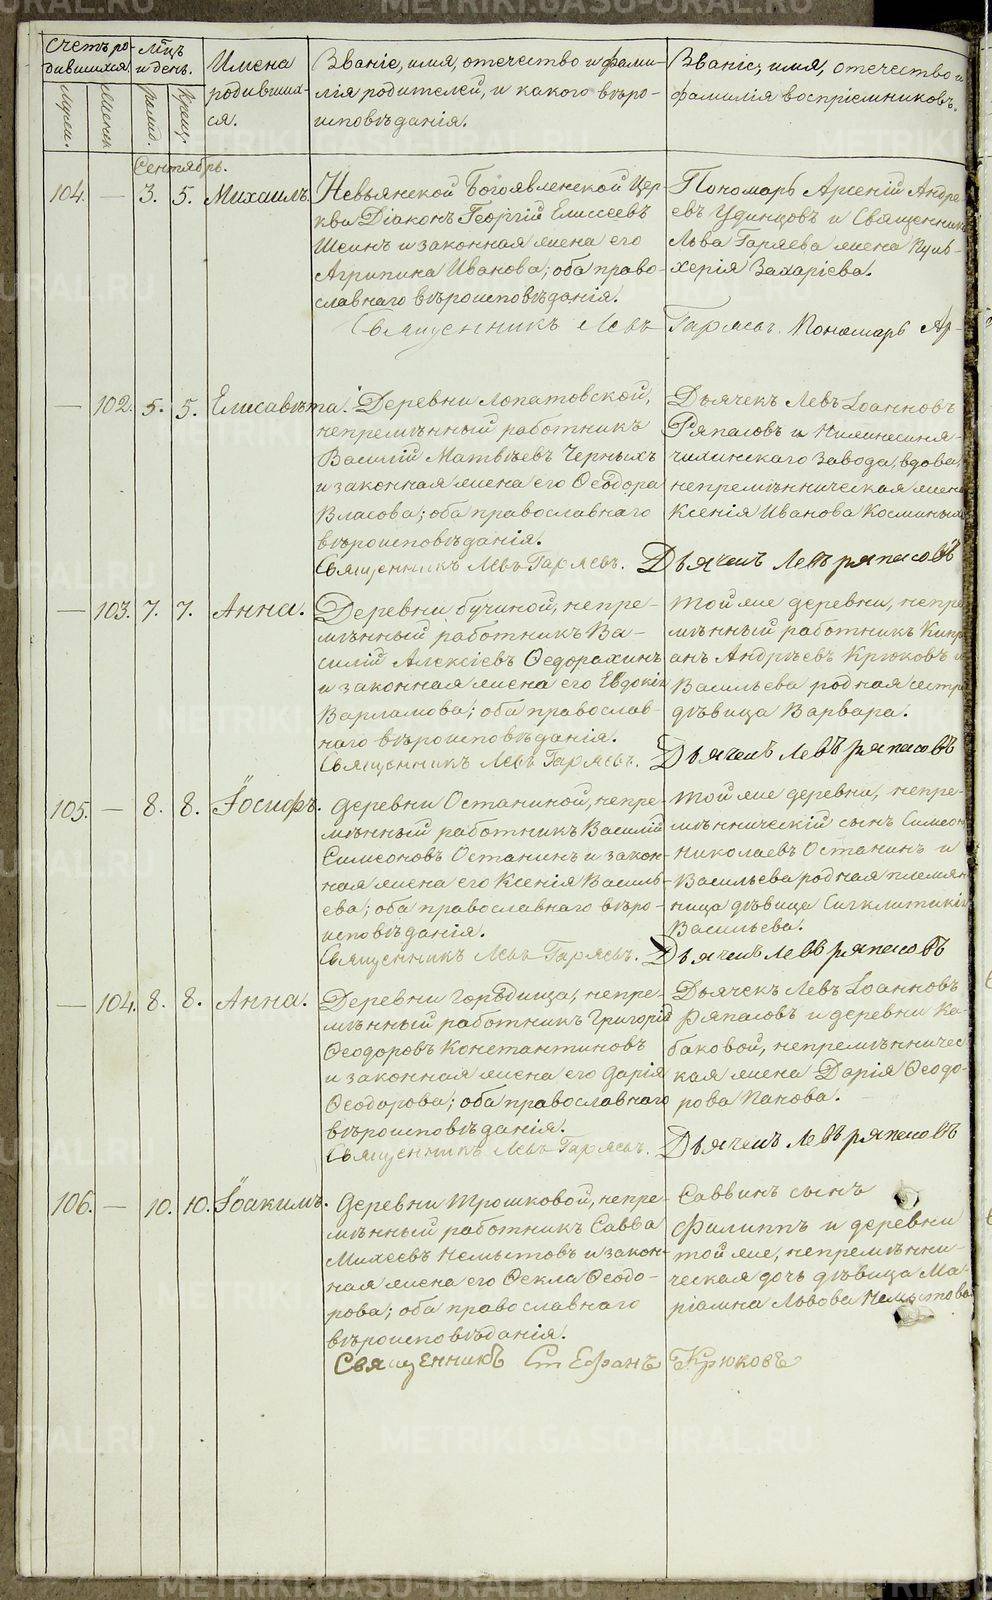 Счетъ ро-
дившихся.
Мѣсцъ
и день.
Имена
родивших-
ся.
Званіе, имя, отечество и фами-
лія родителей, и какого вѣро-
исповѣданія.
Званіе, имя, отечество и
фамилія воспріемниковъ.
Мужеск.
Женск.
рожд.
Крещ.
Сентябрь.
104. — 3. 5. Михаилъ.
Невьянской Богоявленской Цер-
кви Діаконъ Георгій Елисеевъ
Шеинъ и законная жена его
Агрипина Иванова; оба право-
славнаго вѣроисповѣданія.
Пономарь Арсеній Андре-
евъ Удинцовъ и Священника
Льва Гаряева жена Пуль-
херія Захаріева.
Священникъ Левъ Гаряевъ. Пономарь Ар-
— 102. 5. 5. Елисавѣта.
Деревни Лопатовской,
непремѣнный работникъ
Василій Матвѣевъ Черныхъ
и законная жена его Ѳеодора
Власова; оба православнаго
вѣроисповѣданія.
Дьячекъ Левъ Іоанновъ
Ряпасовъ и
завода, вдова,
непремѣнническая жена
Ксенія Иванова
Священникъ Левъ Гаряевъ. Дьячекъ Левъ Ряпасовъ
— 103. 7. 7. Анна.
Деревни Бучиной, непре-
мѣнный работникъ Ва-
силій Алексіевъ Ѳедорахинъ
и законная жена его Евдокія
Варламова; оба православ-
наго вѣроисповѣданія.
Той же деревни, непре-
мѣнный работникъ Кипрі-
анъ Андреевъ Крюковъ и
Васильева родная сестра
дѣвица Варвара.
Священникъ Левъ Гаряевъ. Дьячекъ Левъ Ряпасовъ
105. — 8. 8. Іосифъ.
Деревни Останиной, непре-
мѣнный работникъ Василій
Симеоновъ Останинъ и закон-
ная жена его Ксенія Василь-
ева; оба православнаго вѣро-
исповѣданія.
Той же деревни, непре-
мѣнническій сынъ Симеонъ
Николаевъ Останинъ и
Васильева родная племян-
ница дѣвица Сигклитикія
Васильева.
Священникъ Левъ Гаряевъ. Дьячекъ Левъ Ряпасовъ
— 104. 8. 8. Анна.
Деревни Городища, непре-
мѣнный работникъ Григорій
Ѳеодоровъ Константиновъ
и законная жена его Дарія
Ѳеодорова; оба православнаго
вѣроисповѣданія.
Дьячекъ Левъ Іоанновъ
Ряпасовъ и деревни Ка-
баковой, непремѣнничес-
кая жена Дарія Ѳеодо-
рова Панова.
Священникъ Левъ Гаряевъ. Дьячекъ Левъ Ряпасовъ
106. — 10. 10. Іоакимъ.
Деревни Трошковой, непре-
мѣнный работникъ Савва
Михеевъ Немытовъ и закон-
ная жена его Ѳекла Ѳеодо-
рова; оба православнаго
вѣроисповѣданія.
Саввинъ сынъ
Филиппъ и деревни
той же, непремѣнни-
ческая дочь дѣвица Ма-
ріамна Львова Немытова
Священникъ Стефанъ Крюковъ
METRIKI.GASO-URAL.RU